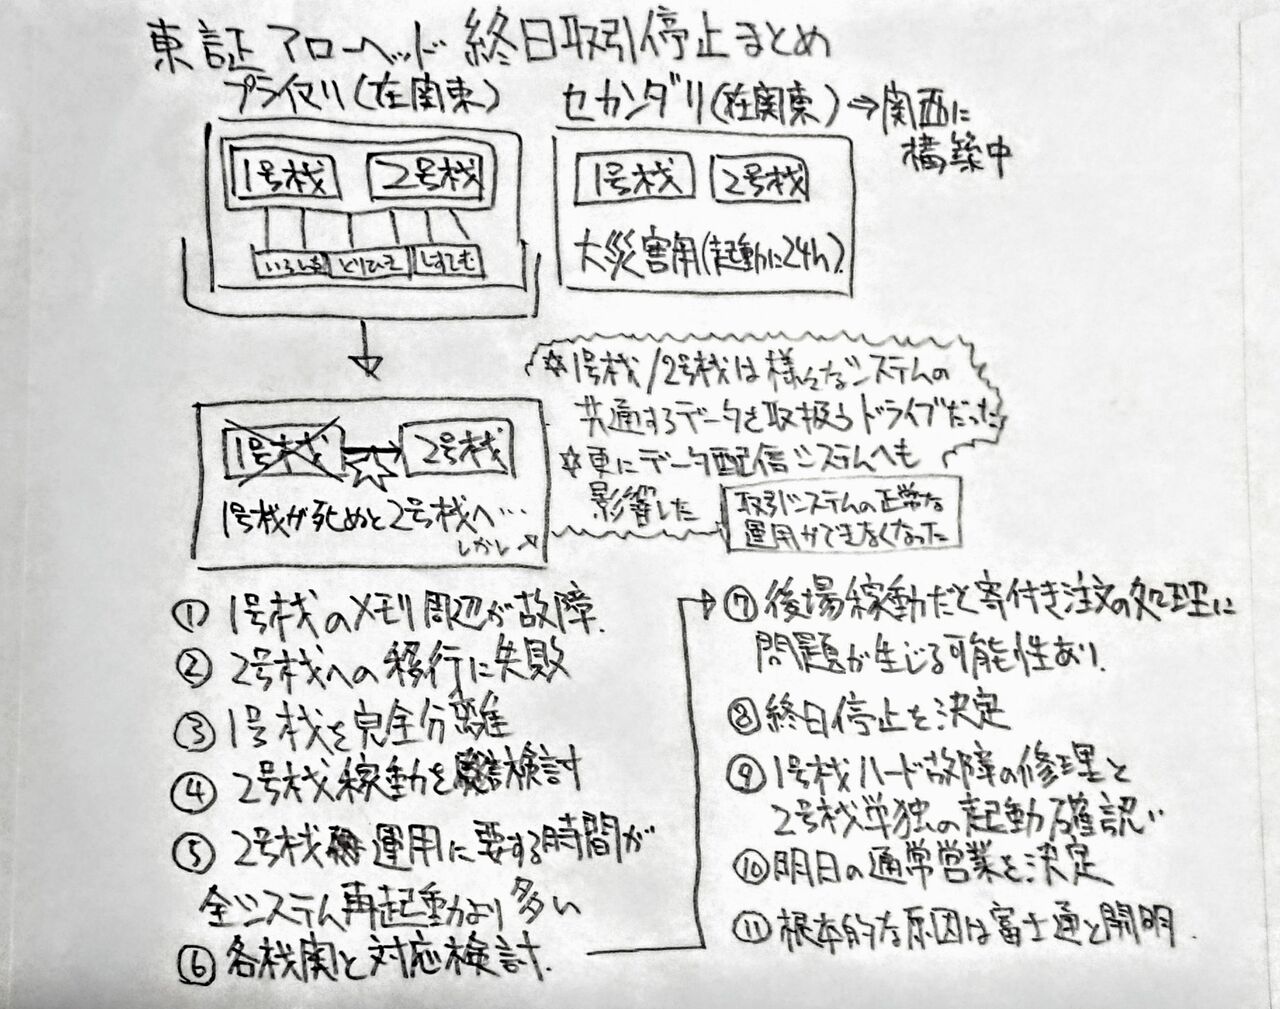 東証アローヘッド終日取引停止まとめ
プライマリ(在関東)
セカンダリ(在関東)→関西に
構築中
1号機 2号機
いろしま とりひき しても
1号機 2号機
大災害用(起動に24h)
1号機 → 2号機
1号機が死ぬと2号機へ…
しかし→
☆1号機/2号機は様々なシステムの
共通するデータを取扱うドライブだった
☆更にデータ配信システムへも
影響した
取引システムの正常な
運用ができなくなった
①1号機のメモリ周辺が故障.
②2号機への移行に失敗
③1号機を完全分離
④2号機稼動を検討
⑤2号機運用に要する時間が
全システム再起動より多い
⑥各機関と対応検討.
⑦後場稼動だと寄付き注文の処理に
問題が生じる可能性あり.
⑧終日停止を決定
⑨1号機ハード故障の修理と
2号機単独の起動確認い
⑩明日の通常営業を決定
⑪根本的な原因は富士通と開明.